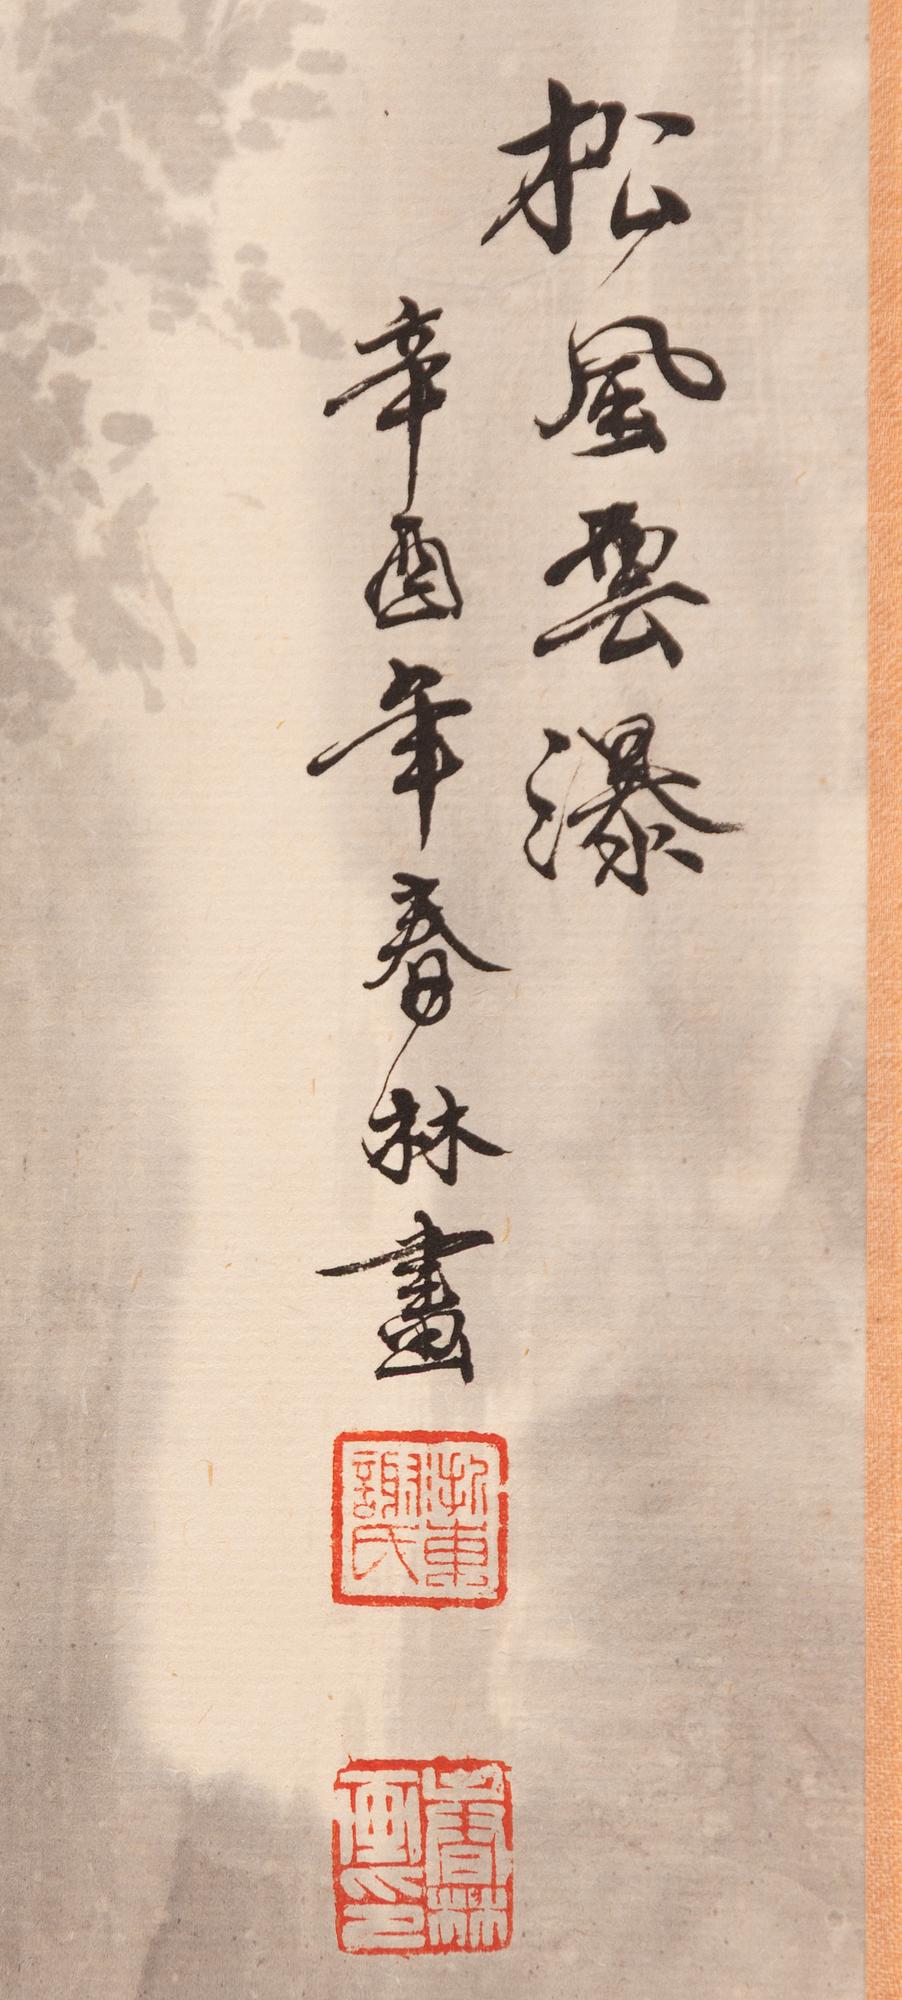 松風雲瀑
辛酉年春林畫
浙東謝氏
春林畫印